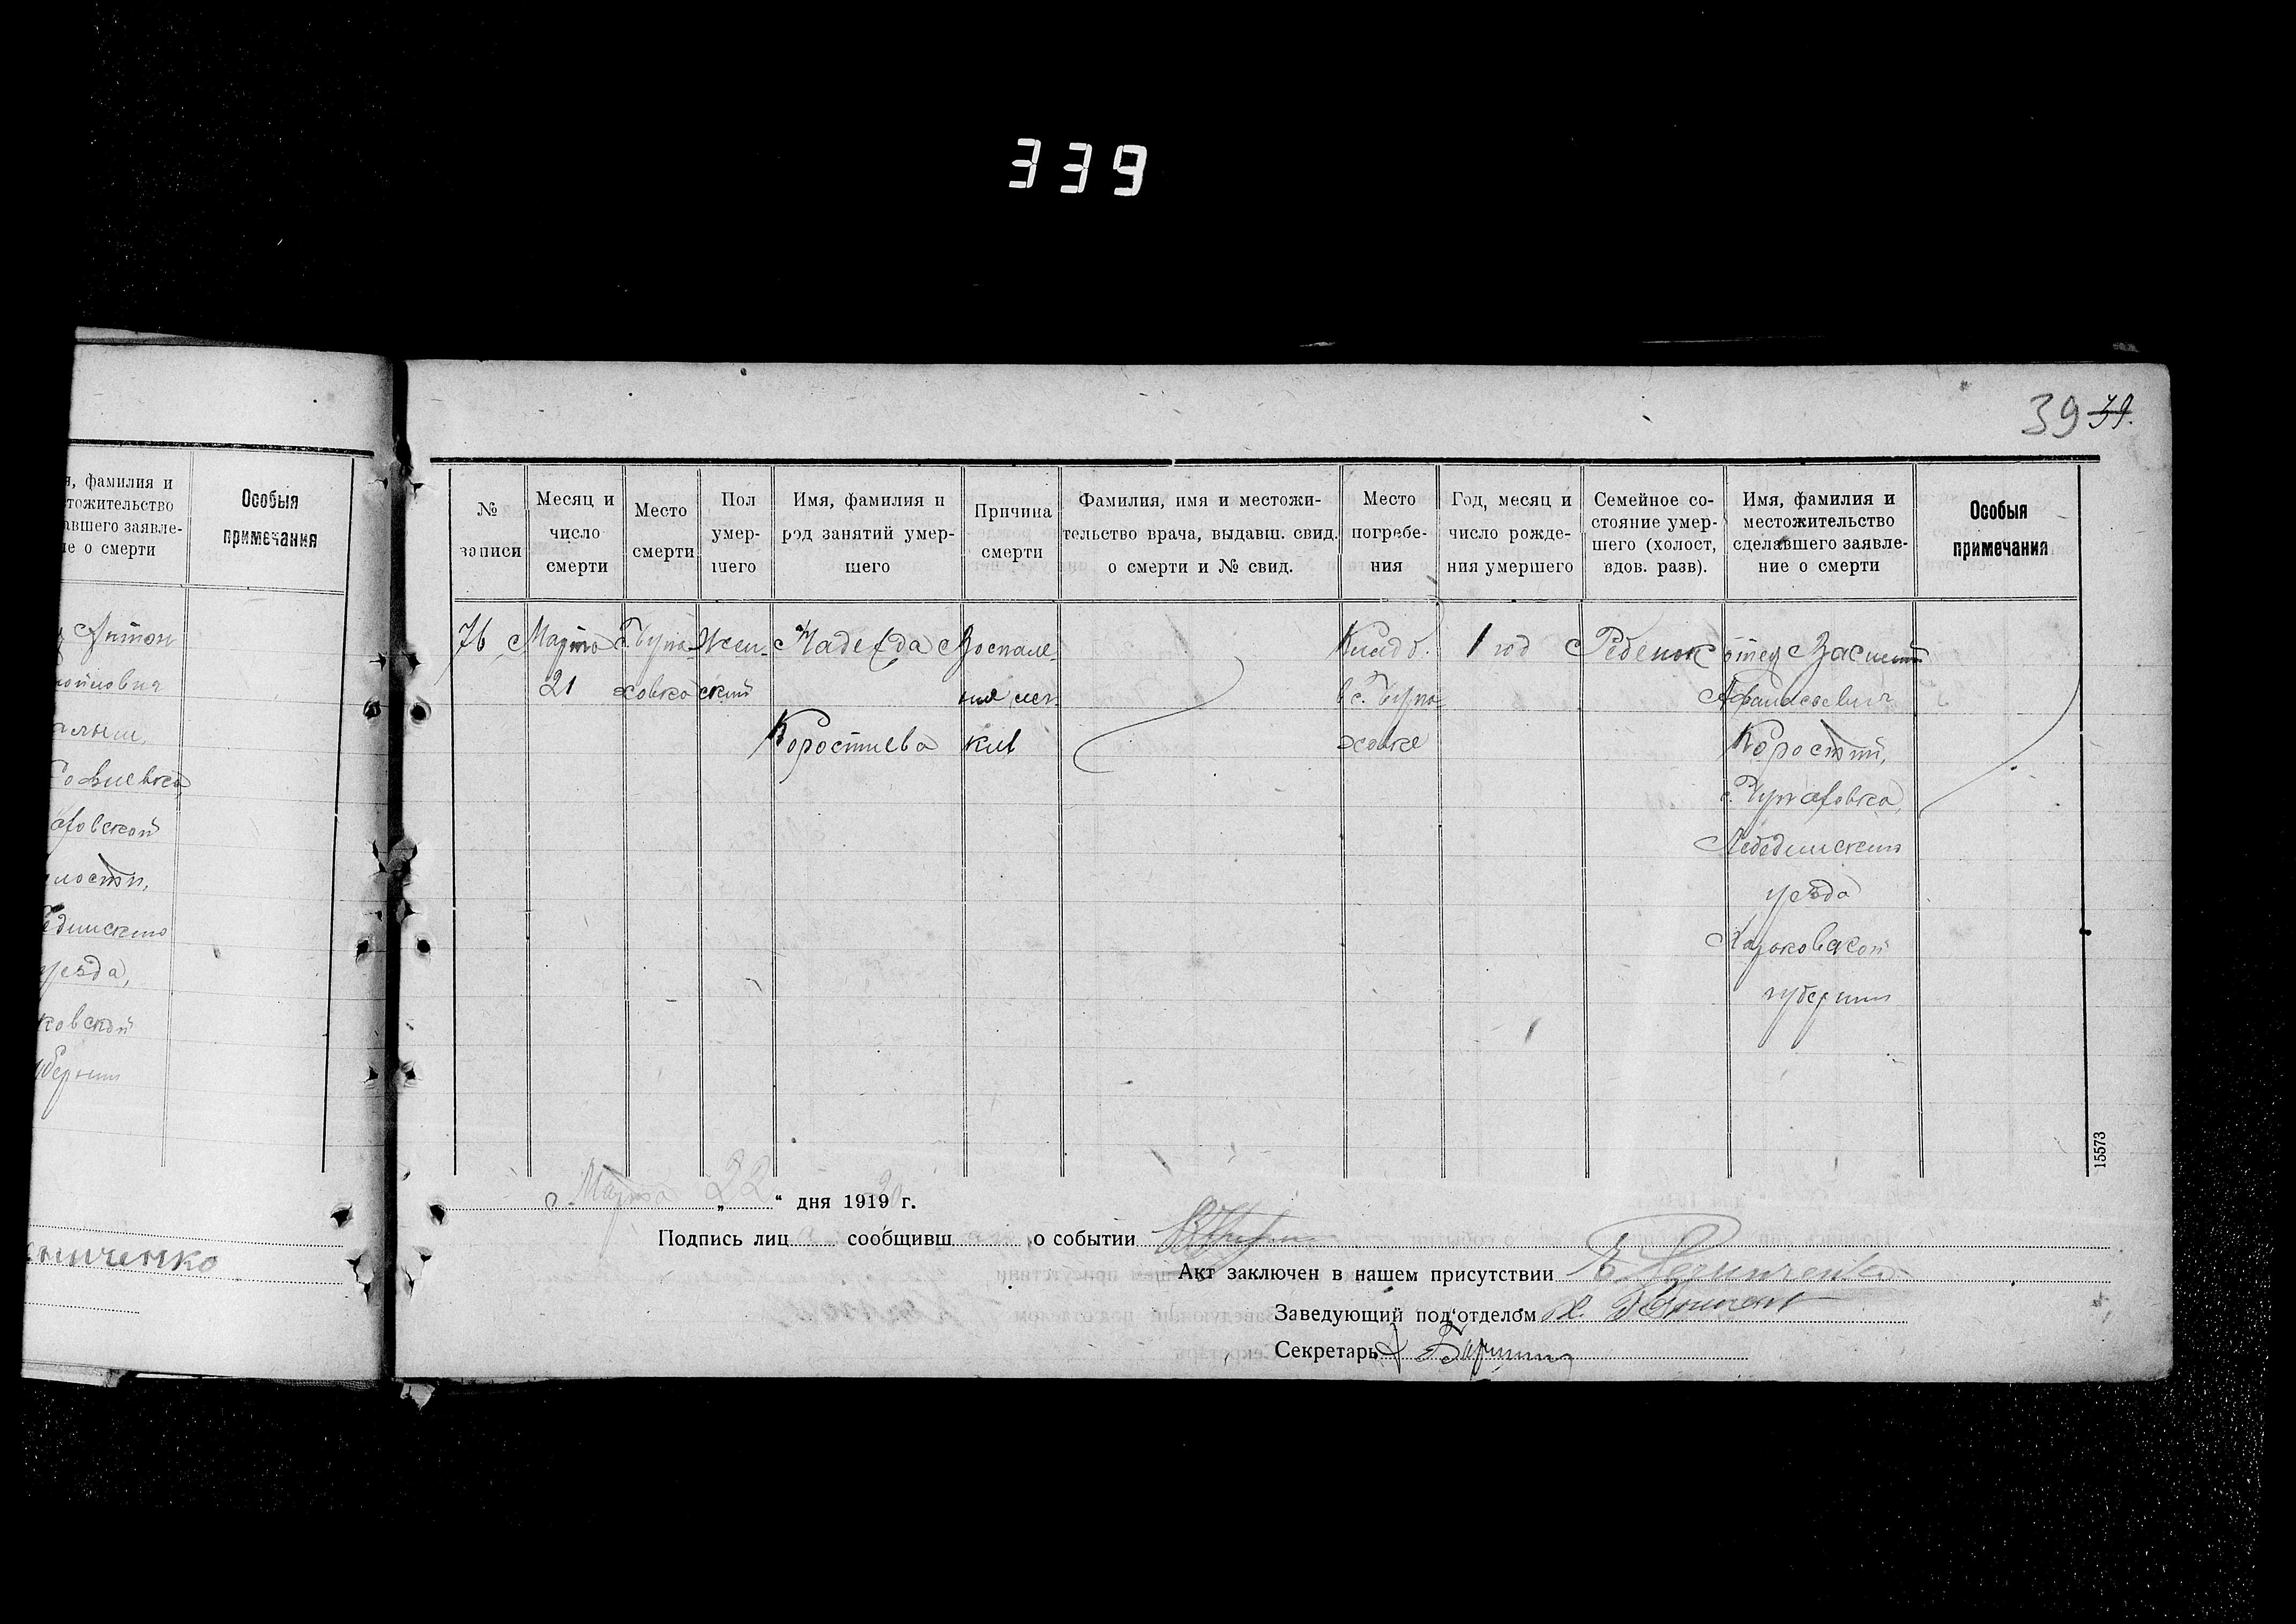 339
39 39.
я, фамилия и
стожительство
авшего заявле-
ие о смерти
Особыя
примечания
Антон
Софиевка,
едшиского
уезда,
ковской
губернии
нниченко
№
записи
Месяц и
число
смерти
Место
смерти
Пол
умер-
шего
Имя, фамилия и
род занятий умер-
шего
Причина
смерти
Фамилия, имя и местожи-
тельство врача, выдавш. свид.
о смерти и № свид.
Место
погребе-
ния
Год, месяц и
число рожде-
ния умершего
Семейное со-
стояние умер-
шего (холост,
вдов. разв).
Имя, фамилия и
местожительство
сделавшего заявле-
ние о смерти
Особыя
примечания
76
Марта
21
с. Чупа-
ховка
Жен-
ский
Надежда
Коростиева
Воспале-
ния лег-
ких
Кладб.
в с. Чупа-
ховке
1 год
Ребенок
отец Василий
Афанасьевич
Коростий,
с. Чупаховка,
Лебединского
уезда
Харьковской
губернии
15573
Марта „ 22 “ дня 1919 г.
Подпись лиц сообщивш о событии
Акт заключен в нашем присутствии
Заведующий под'отделом
Секретарь